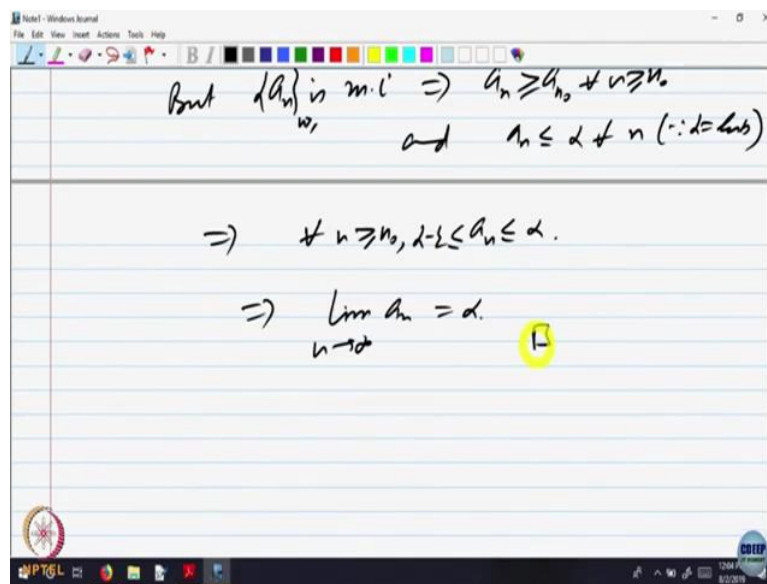 Note1 - Windows Journal
File Edit View Insert Actions Tools Help
But {aₙ}ₙ≥₁ is m.i ⇒ aₙ ≥ aₙ₀ ∀ n ≥ n₀
and aₙ ≤ α ∀ n (∵ α = lub)
⇒ ∀ n ≥ n₀, α-ε ≤ aₙ ≤ α.
⇒ lim aₙ = α.
n→∞
NPTEL
CDEEP
8/2/2019